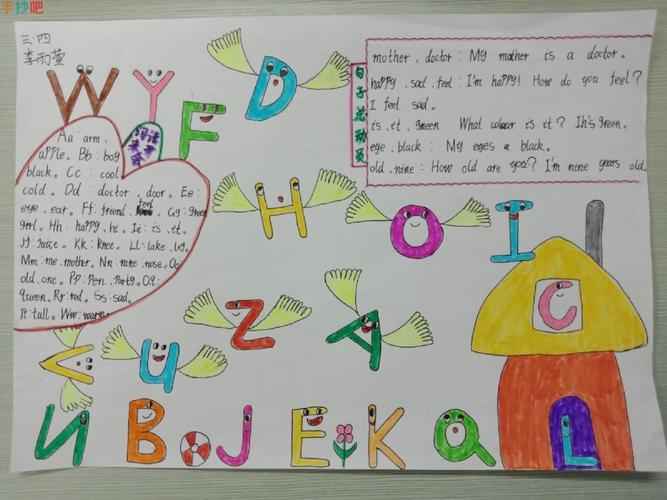 手抄吧
三.四
李雨萱
W Y F D
Aa: arm.
apple. Bb: boy
black. Cc: cool
cold. Dd doctor. door. Ee:
eye. ear. Ff: friend. feel. Gg: green
girl. Hh: happy. he. Ie: is. et.
Jj: juice. Kk: knee. Ll: lake. leg.
Mm: me. mother. Nn: nine. nose. Oo
old. one. Pp: Pen. Party. Qq:
queen. Rr: red. Ss: sad.
Tt: tall. Ww:
句子总动员
mother. doctor: My mother is a doctor.
happy. sad. feel: I'm happy! How do you feel?
I feel sad.
is. et. green What colour is et? Ih's green.
eye. black: My eyes a black.
old. nine: How old are you? I'm nine years old.
H O I
Z A C
V U
N B J E K Q L